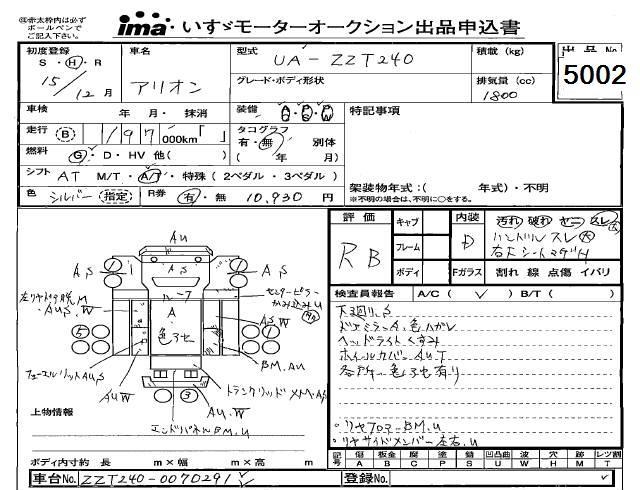 ㊟赤太枠内は必ず
ボールペンで
ご記入下さい。
ima いすゞモーターオークション出品申込書
初度登録
S・H・R
15/12月
車名
アリオン
型式
UA-ZZT240
グレード・ボディ形状
積載 (kg)
排気量(cc)
1800
出品No
5002
車検 年 月・ 抹消
走行 B 197 000km「 」
燃料 G・D・HV 他( )
シフト AT M/T・A/T・特殊(2ペダル・3ペダル)
色 シルバー 指定 R券 有・無 10,930 円
装備 AC・PS・PW
タコグラフ
有・無 別体
( 年 月)
特記事項
架装物年式:( 年式)・不明
※不明の場合は、不明に○をする。
評価
RB
キャブ
フレーム
ボディ
内装
D
Fガラス
汚れ 破れ ヤニ スレ 大
ハンドルスレ大
割れ 線 点傷 イバリ
検査員報告 A/C( ✓ ) B/T( )
下廻り.S
ドアミラーA.色ハガレ
ヘッドライトくすみ
ホイールカバーAUT
各所、色アセ有り
・リヤフロアーBM.U
・リヤサイドメンバー左右.U
AU
AS
1
1
AS
AS
ルーフ
A
色アセ
AU.W
5
AS.W
BM.AU
フューエルリットAUS
トランクリッドXM.AS
AU.W
3
AU.W
エンドパネルBM.U
上物情報
ボディ内寸約 長 m×幅 m×高 m
記号
傷 A
板金 B
腐 C
塗 P
錆 S
凹凸曲 U
波 W
穴 H
跡 M
レツ割 T
車台No. ZZT240-0070291 ✓
登録No.